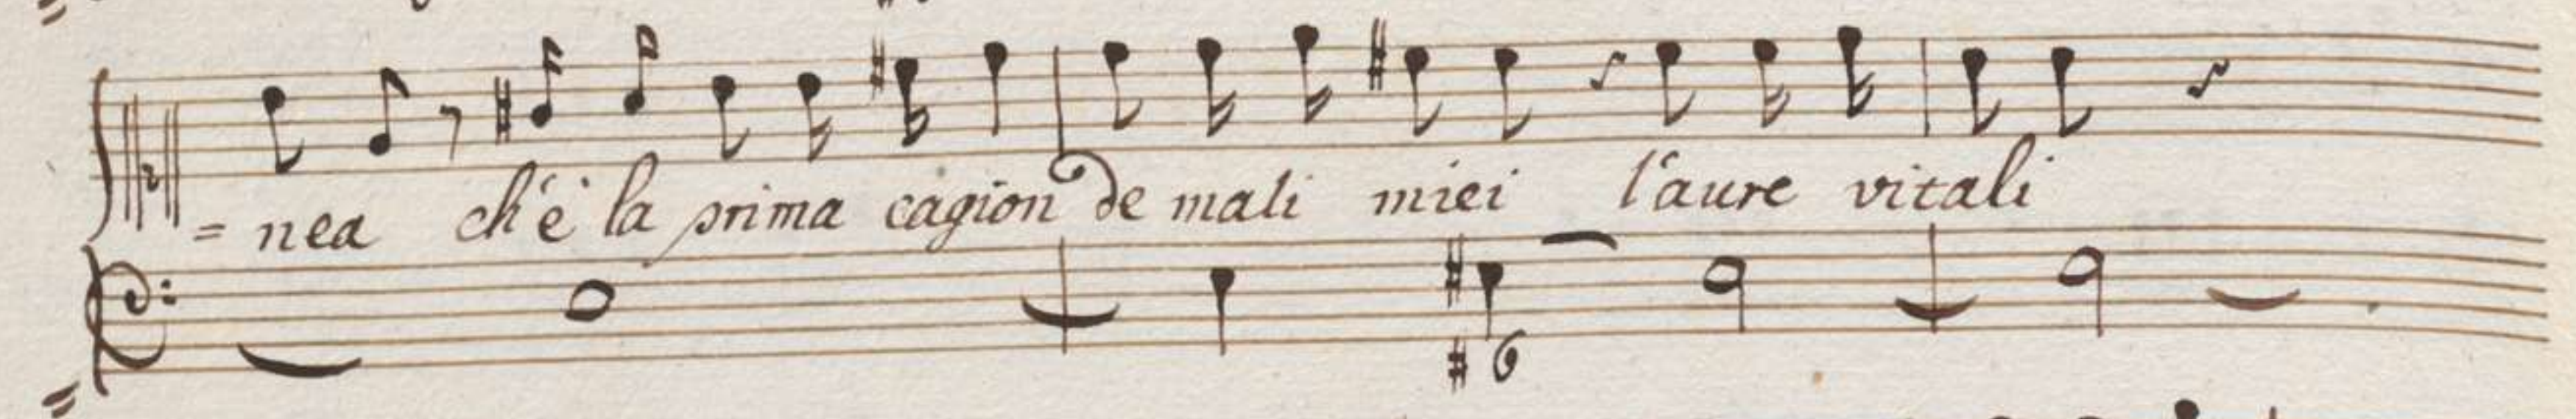 = nea ch'è la prima cagion de mali miei l'aure vitali
# 6